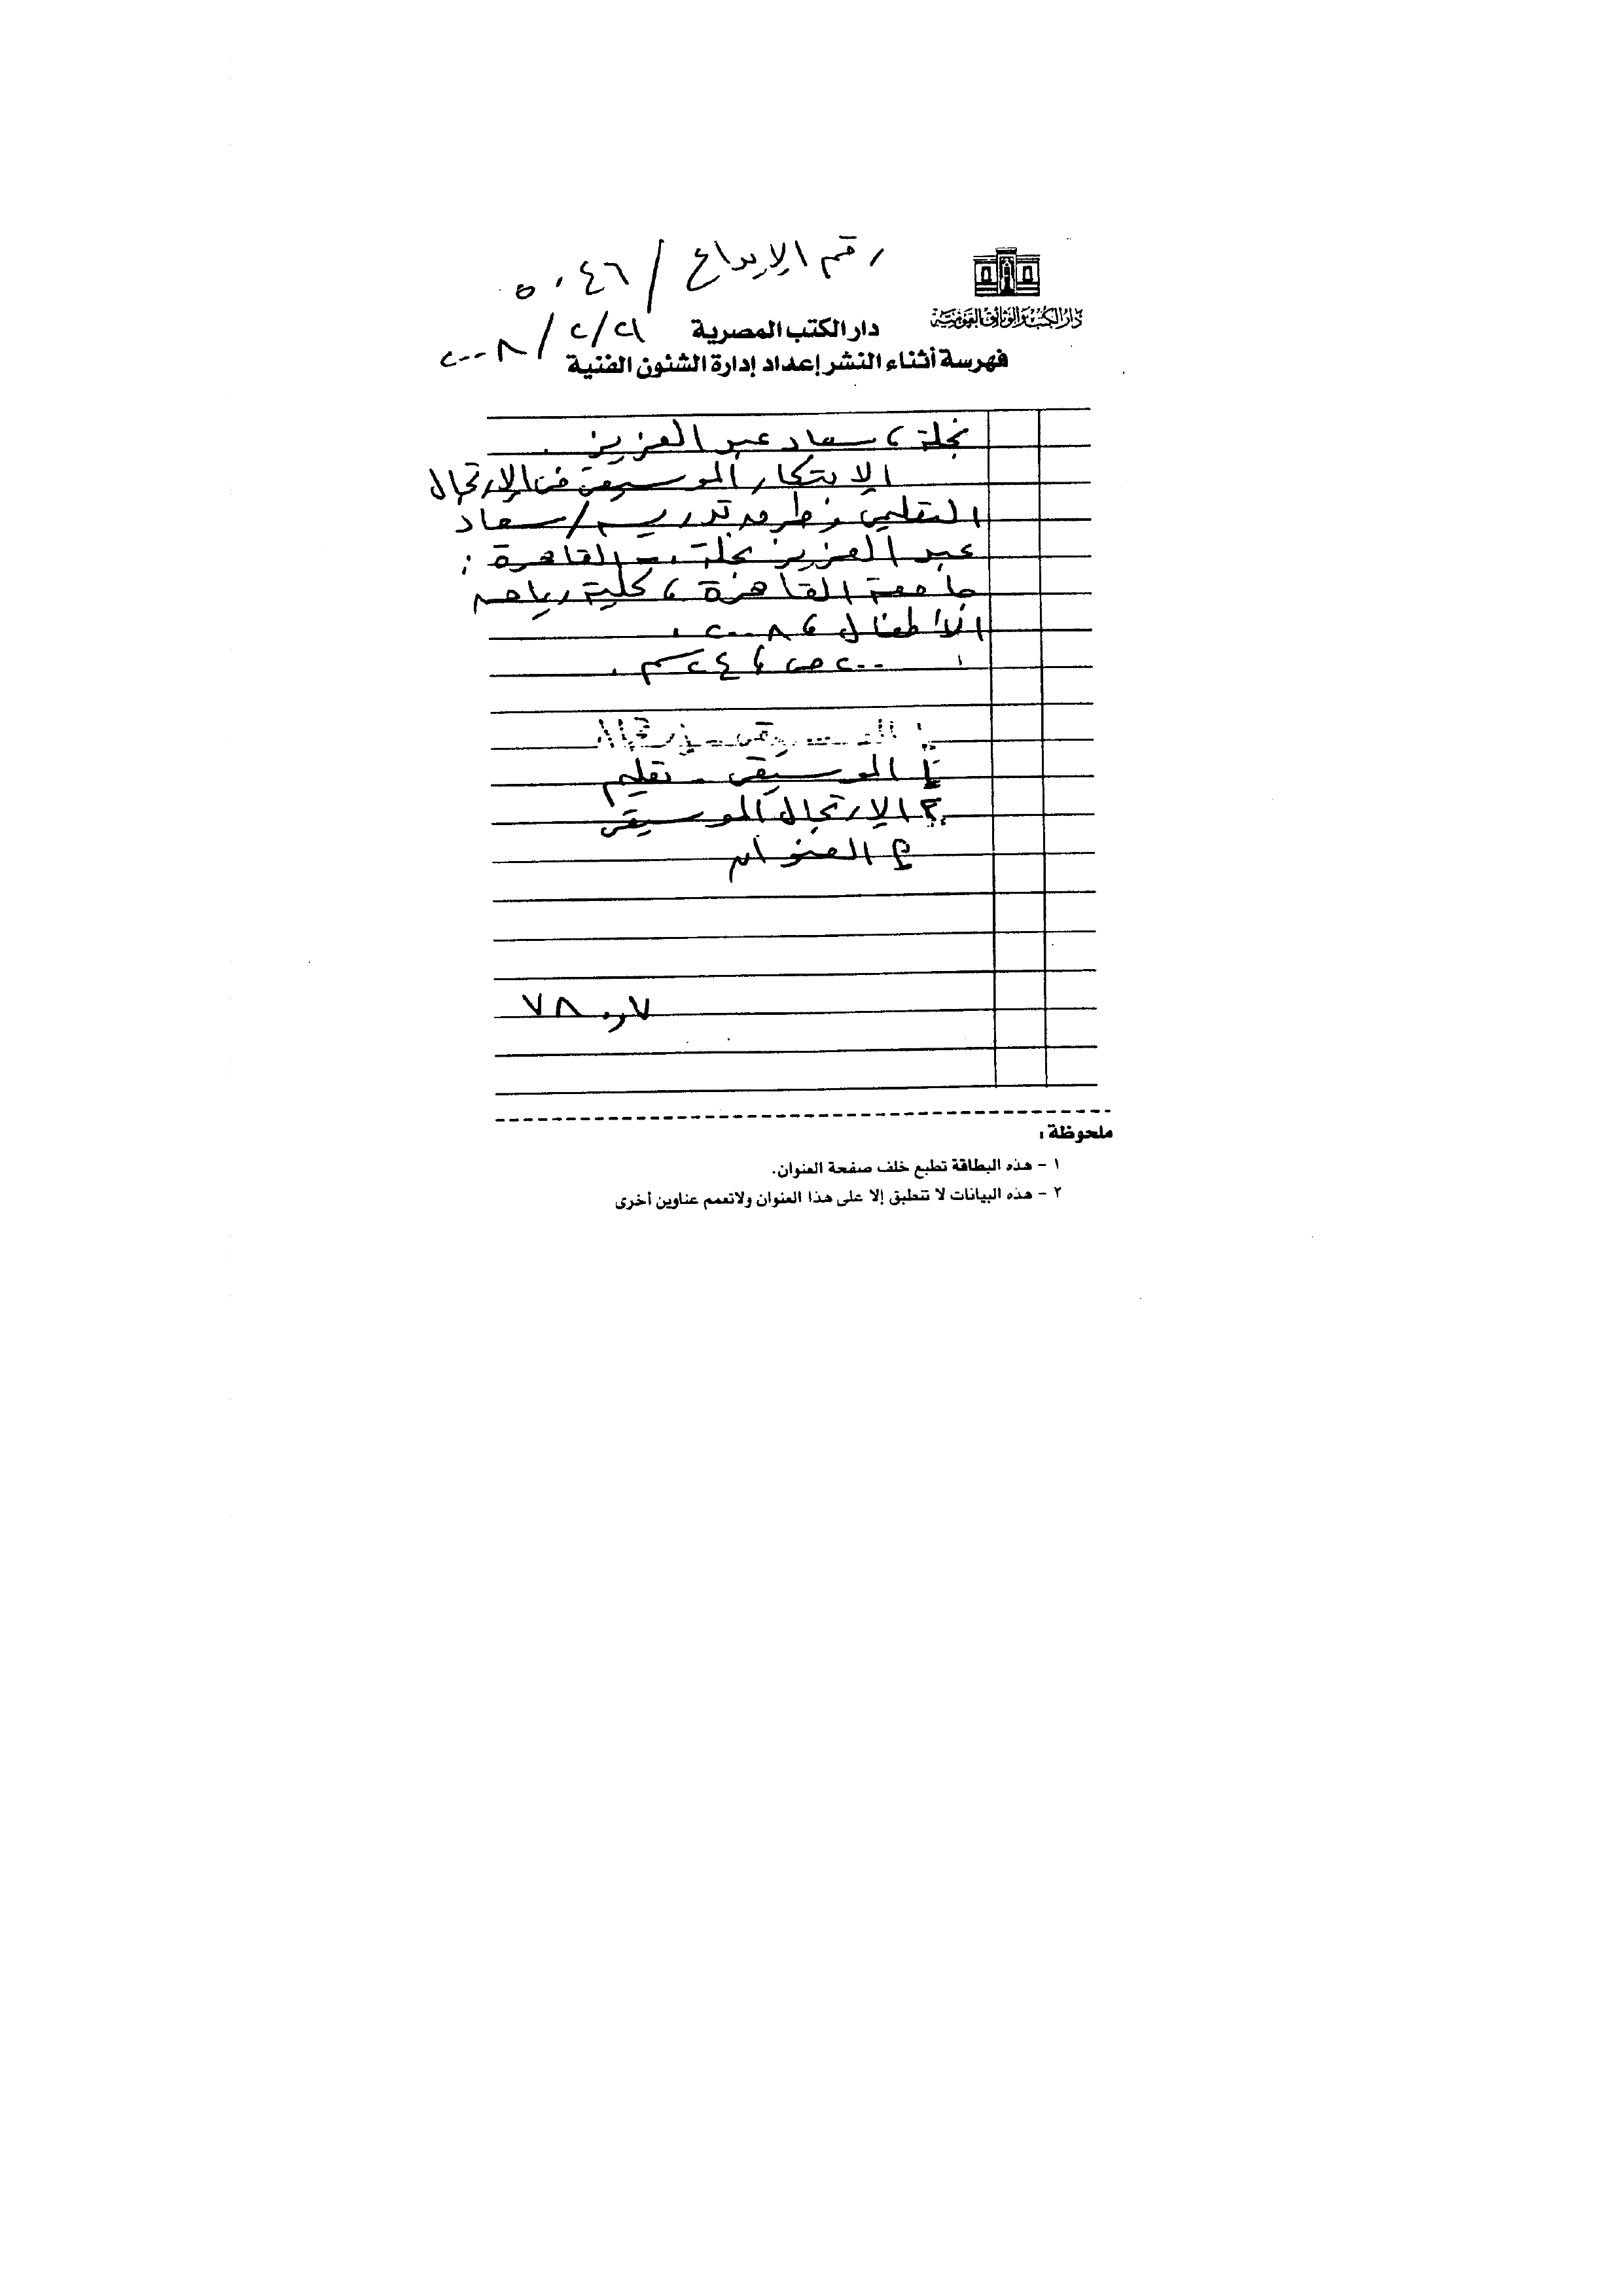 رقم الإيداع / ٥٠٤٦
دار الكتب والوثائق القومية
دار الكتب المصرية
٢١/٢/٢٠٠٨
فهرسة أثناء النشر إعداد إدارة الشئون الفنية
نجلة، سعاد عبد العزيز.
الابتكار الموسيقى فى الإرتجال
التعليمى وطرق تدريسه/ سعاد
عبد العزيز نجلة .- القاهرة :
جامعة القاهرة، كلية رياض
الأطفال، ٢٠٠٨.
٢٠٠ ص، ٢٤ سم.
١- الموسيقى - تعليم
٢- الإرتجال الموسيقى
أ- العنوان
٧٨٠,٧
ملحوظة :
١ - هذه البطاقة تطبع خلف صفحة العنوان.
٢ - هذه البيانات لا تنطبق إلا على هذا العنوان ولاتعمم عناوين أخرى